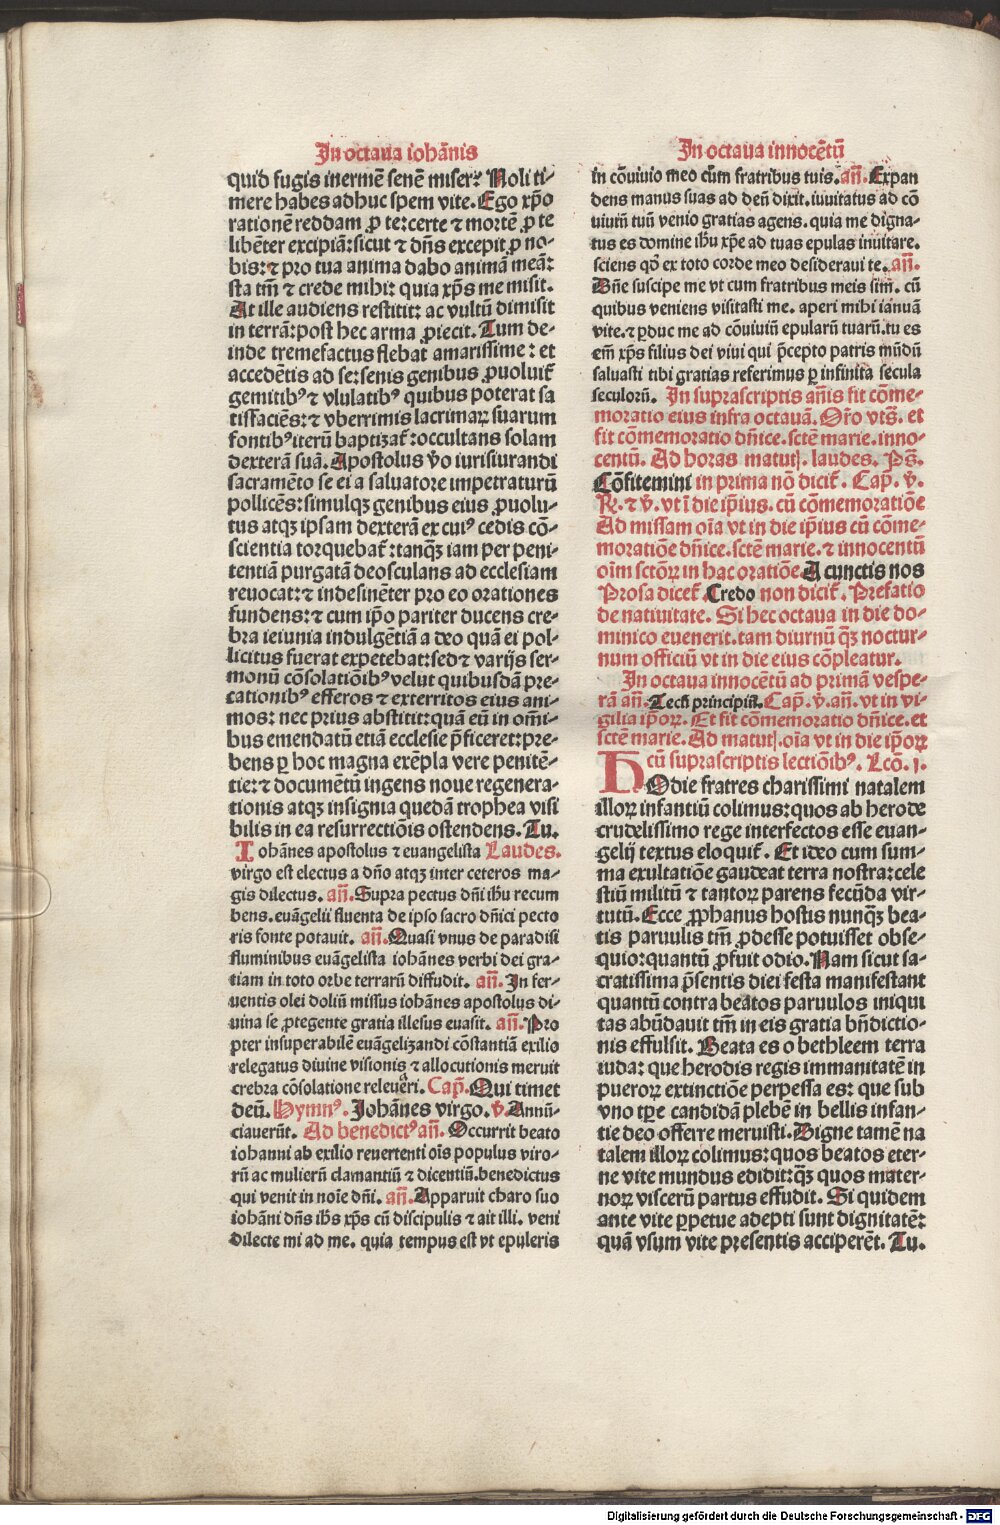 In octaua iohānis
quid fugis inermē senē miser? Noli ti-
mere habes adhuc spem vite. Ego xp̄o
rationē reddam ꝓ te: certe ⁊ mortē ꝓ te
libēter excipiā: sicut ⁊ dn̄s excepit ꝓ no-
bis: ⁊ pro tua anima dabo animā meā:
sta tm̄ ⁊ crede mihi: quia xp̄s me misit.
At ille audiens restitit: ac vultū dimisit
in terrā: post hec arma ꝓiecit. Tum de-
inde tremefactus flebat amarissime: et
accedētis ad se: senis genibus ꝓuoluit᷑
gemitibꝰ ⁊ vlulatibꝰ quibus poterat sa
tissaciēs: ⁊ vberrimis lacrimaꝝ suarum
fontibꝰ iterū baptizat᷑: occultans solam
dexterā suā. Apostolus v̄o iurisiurandi
sacramēto se ei a saluatore impetraturū
pollicēs: simulqꝫ genibus eius ꝓuolu-
tus atqꝫ ipsam dexterā ex cuiꝰ cedis cō-
scientia torquebat᷑: tanqꝫ̄ iam per peni-
tentiā purgatā deosculans ad ecclesiam
reuocat: ⁊ indesinēter pro eo orationes
fundens: ⁊ cum ip̄o pariter ducens cre-
bra ieiunia indulgētiā a deo quā ei pol-
licitus fuerat expetebat: sed ⁊ varijs ser-
monū cōsolationibꝰ velut quibusdā pre-
cationibꝰ efferos ⁊ exterritos eius ani-
mos: nec prius abstitit: quā eū in om̄i-
bus emendatū etiā ecclesie p̄ficeret: pre-
bens ꝑ hoc magna exēpla vere penitē-
tie: ⁊ documētū ingens noue regenera-
tionis atqꝫ insignia quedā trophea visi
bilis in ea resurrectiōis ostendens. Tu.
Iohānes apostolus ⁊ euangelista Laudes.
virgo est electus a dn̄o atqꝫ inter ceteros ma-
gis dilectus. an̄. Supra pectus dn̄i ih̄u recum
bens. euāgelii fluenta de ipso sacro dn̄ici pecto
ris fonte potauit. an̄. Quasi vnus de paradisi
fluminibus euāgelista iohānes verbi dei gra-
tiam in toto orbe terrarū diffudit. an̄. In fer-
uentis olei doliū missus iohānes apostolus di-
uina se ꝓtegente gratia illesus euasit. an̄. Pro
pter insuperabilē euāgelizandi cōstantiā exilio
relegatus diuine visionis ⁊ allocutionis meruit
crebra cōsolatione releueri. Cap̄. Qui timet
deū. Hymnꝰ. Iohānes virgo. v̄. Annū-
ciauerūt. Ad benedictꝰ an̄. Occurrit beato
iohanni ab exilio reuertenti ois̄ populus viro-
rū ac mulierū clamantiū ⁊ dicentiū. benedictus
qui venit in noīe dn̄i. an̄. Apparuit charo suo
iohāni dn̄s ih̄s xp̄s cū discipulis ⁊ ait illi. veni
dilecte mi ad me. quia tempus est vt epuleris
In octaua innocētū
in cōuiuio meo cūm fratribus tuis. an̄. Expan
dens manus suas ad deū dixit. iuuitatus ad cō
uiuiū tuū venio gratias agens. quia me digna-
tus es domine ih̄u xp̄e ad tuas epulas inuitare.
sciens qd̓ ex toto corde meo desideraui te. an̄.
Dn̄e suscipe me vt cum fratribus meis sim̄. cū
quibus veniens visitasti me. aperi mihi ianuā
vite. ⁊ ꝑduc me ad cōuiuiū epularū tuarū. tu es
em̄ xp̄s filius dei viui qui p̄cepto patris mūdū
saluasti tibi gratias referimus ꝑ infinita secula
seculorū. In suprascriptis an̄is fit cōme-
moratio eius infra octauā. Or̄o vts̄. et
fit cōmemoratio dn̄ice. scte̅ marie. inno-
centū. Ad horas matutꝭ. laudes. Ps̄.
Cōfitemini in prima nō dicit᷑. Cap̄. v̄.
R̄. ⁊ v̄. vt ī die ip̄ius. cū cōmemoratiōe
Ad missam oīa vt in die ip̄ius cū cōme-
moratiōe dn̄ice. scte̅ marie. ⁊ innocentū
oīm sctōꝝ in hac oratiōe A cunctis nos
Prosa dicet᷑. Credo non dicit᷑. Prefatio
de natiuitate. Si hec octaua in die do-
minico euenerit. tam diurnū qꝫ̄ noctur-
num officiū vt in die eius cōpleatur.
In octaua innocētū ad primā vespe-
rā an̄. Tecū principiū. Cap̄. v̄. an̄. vt in vi-
gilia ip̄oꝝ. Et fit cōmemoratio dn̄ice. et
scte̅ marie. Ad matutꝭ. oīa vt in die ip̄oꝝ
cū suprascriptis lectiōibꝰ. Lcō. I.
HOdie fratres charissimi natalem
illoꝝ infantiū colimus: quos ab herode
crudelissimo rege interfectos esse euan-
gelij textus eloquit᷑. Et ideo cum sum-
ma exultatiōe gaudeat terra nostra: cele
stiū militū ⁊ tantoꝝ parens fecūda vir-
tutū. Ecce ꝓphanus hostis nunqꝫ̄ bea-
tis paruulis tm̄ ꝓdesse potuisset obse-
quio: quantū ꝓfuit odio. Nam sicut sa-
cratissima p̄sentis diei festa manifestant
quantū contra beatos paruulos iniqui
tas abūdauit tm̄ in eis gratia bn̄dictio-
nis effulsit. Beata es o bethleem terra
iuda: que herodis regis immanitatē in
pueroꝝ extinctiōe perpessa es: que sub
vno tꝑe candidā plebē in bellis infan-
tie deo offerre meruisti. Digne tamē na
talem illoꝝ colimus: quos beatos eter-
ne vite mundus edidit: qꝫ̄ quos mater-
noꝝ visceru̅ partus effudit. Si quidem
ante vite ꝑpetue adepti sunt dignitatē:
quā vsum vite presentis acciperēt. Tu.
Digitalisierung gefördert durch die Deutsche Forschungsgemeinschaft - DFG